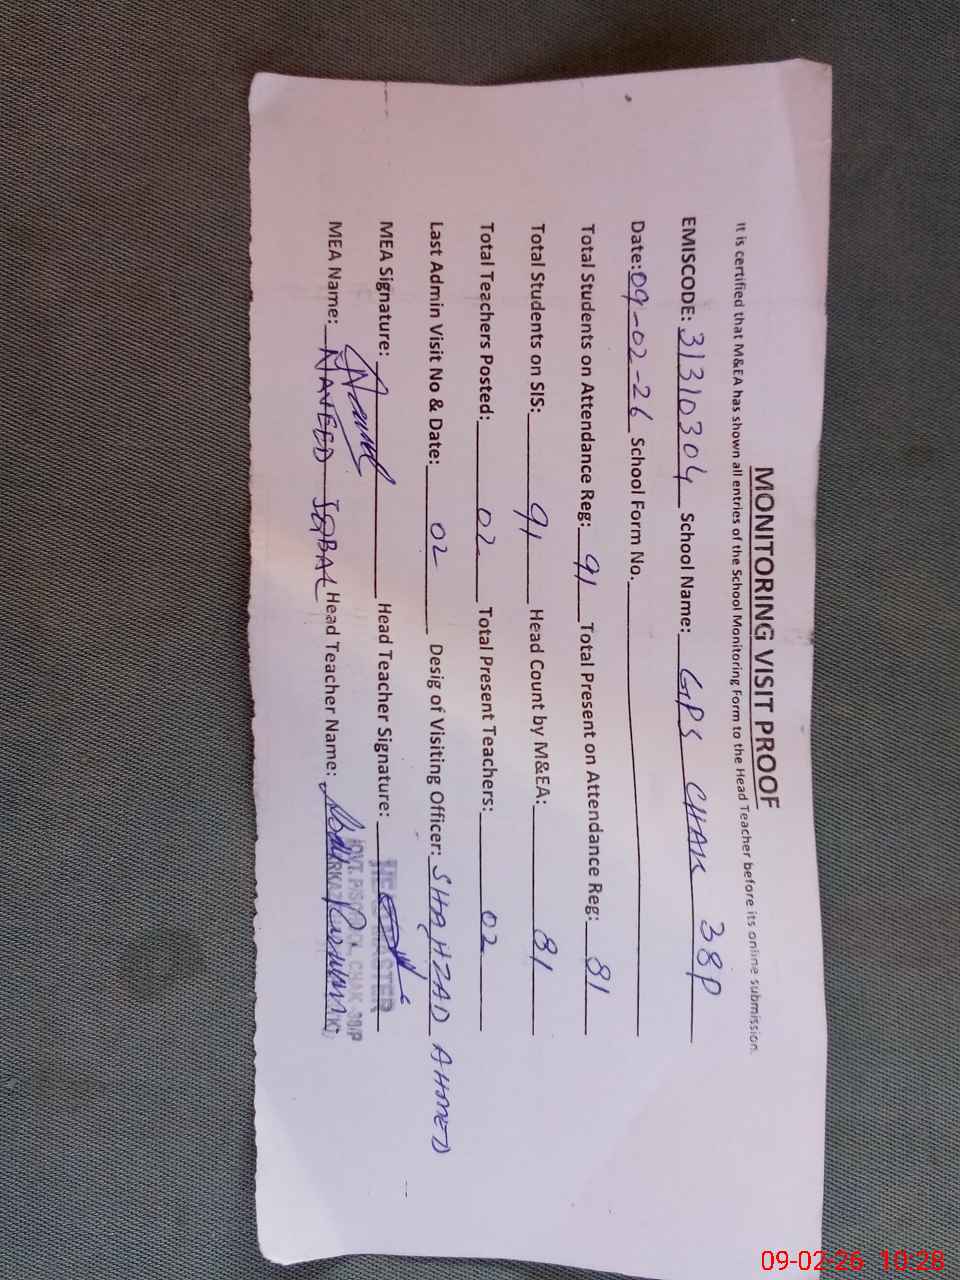 MONITORING VISIT PROOF
It is certified that M&EA has shown all entries of the School Monitoring Form to the Head Teacher before its online submission.
EMISCODE: 31310304 School Name: GPS CHAK 38P
Date: 09-02-26 School Form No.
Total Students on Attendance Reg: 91 Total Present on Attendance Reg: 81
Total Students on SIS: 91 Head Count by M&EA: 81
Total Teachers Posted: 02 Total Present Teachers: 02
Last Admin Visit No & Date: 02 Desig of Visiting Officer: SHAHZAD AHMED
MEA Signature: Head Teacher Signature:
MEA Name: NAVEED IQBAL Head Teacher Name:
CHAK
09-02-26 10:28